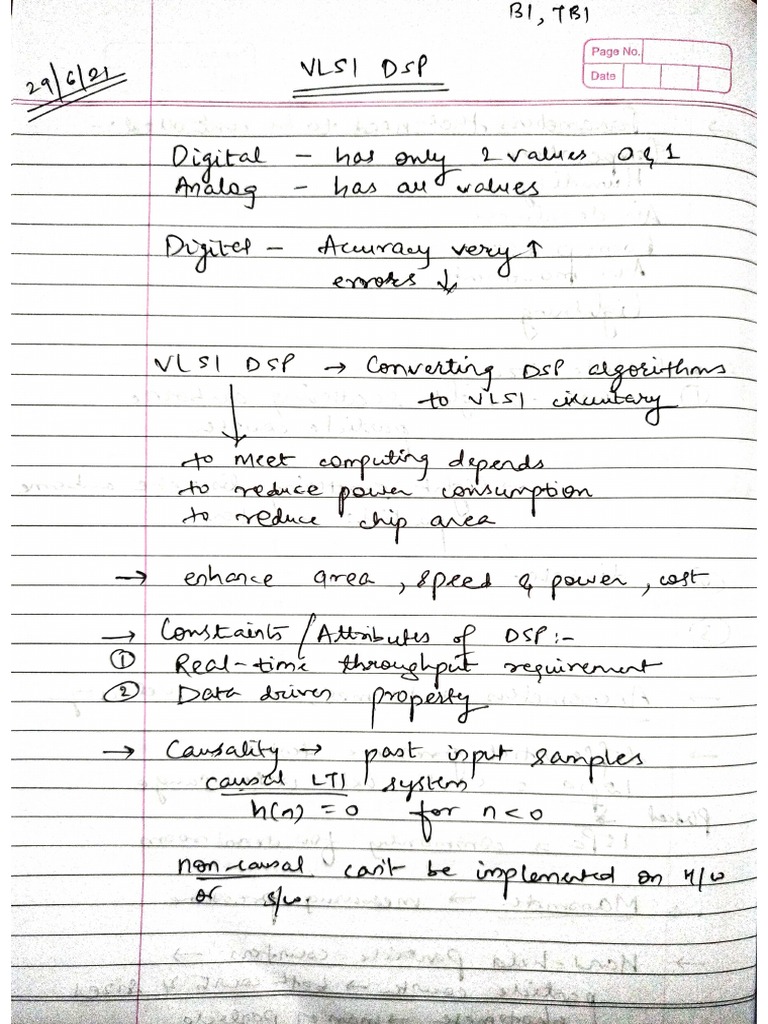 B1, TB1
Page No.
Date
29/6/21
VLSI DSP
Digital - has only 2 values 0 & 1
Analog - has all values
Digital - Accuracy very ↑
errors ↓
VLSI DSP → Converting DSP algorithms
to VLSI circuitary
↓
to meet computing depends
to reduce power consumption
to reduce chip area
→ enhance area, speed & power, cost
→ Constaints / Attributes of DSP:-
① Real-time throughput requirement
② Data driven property
→ Causality → past input samples
causal LTI system
h(n) = 0 for n < 0
non-causal can't be implemented on H/W
or S/W